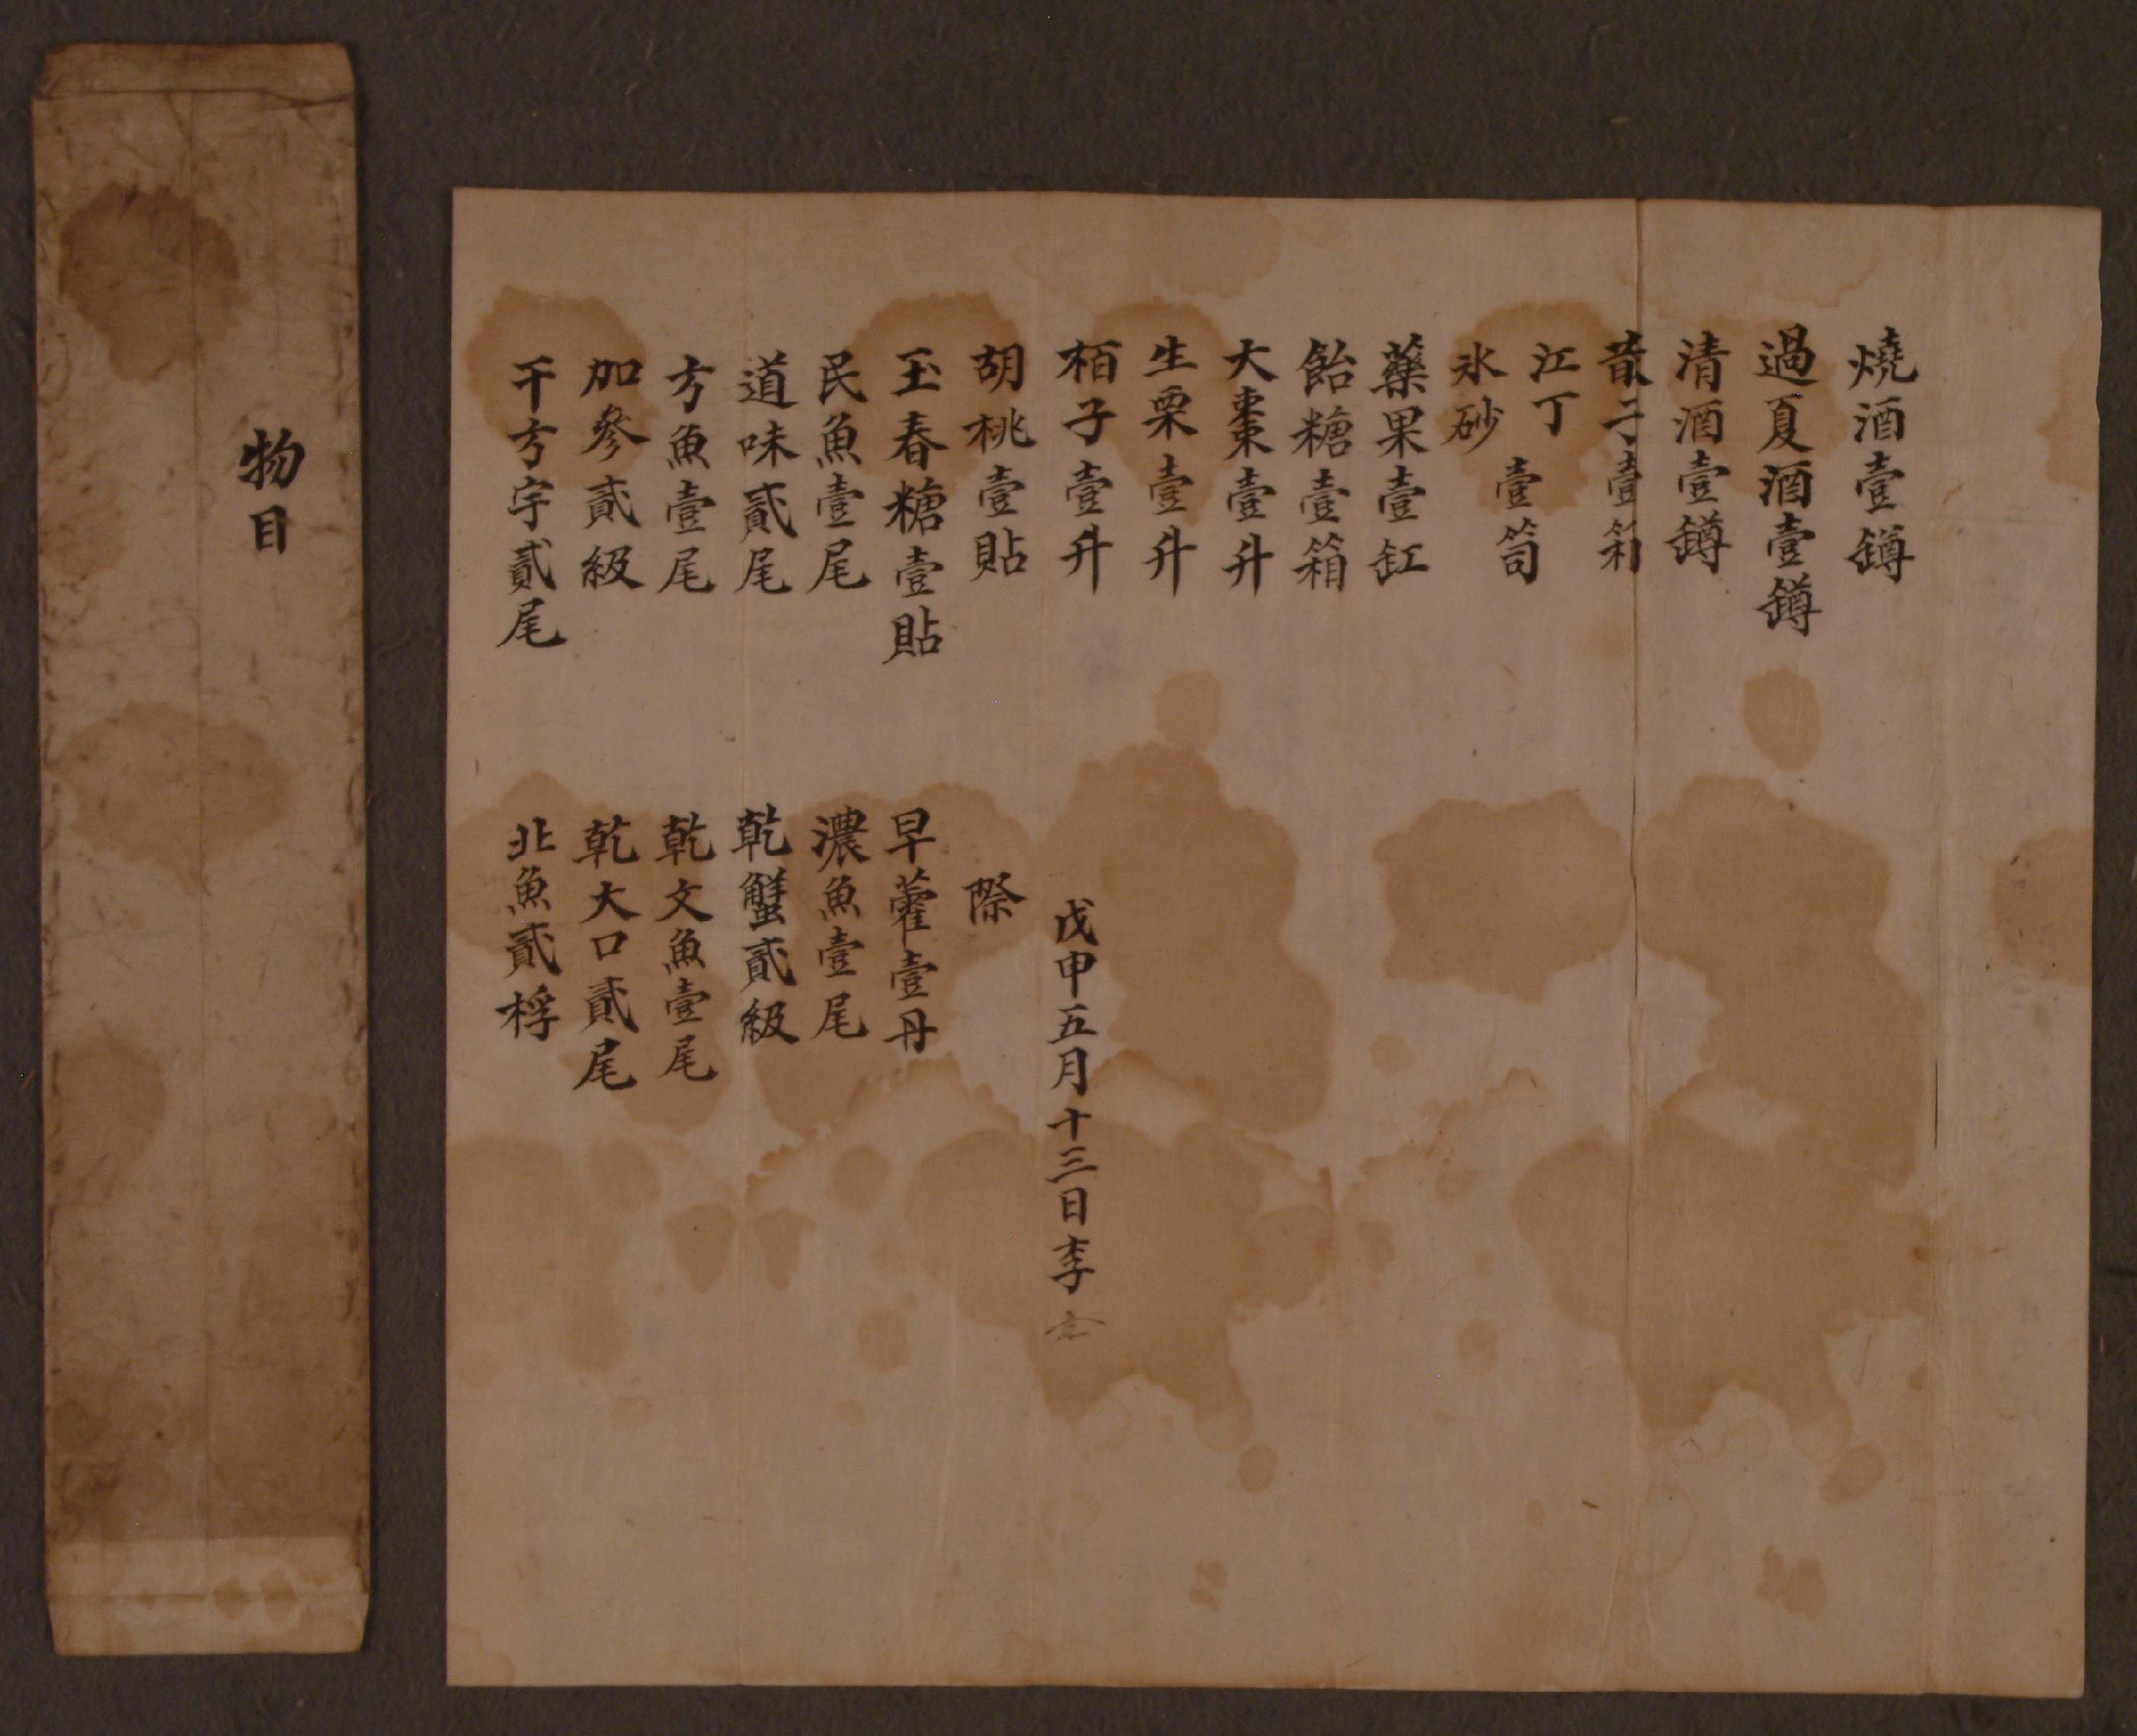 物目
燒酒壹鐏
過夏酒壹鐏
清酒壹鐏
子壹箱
江丁
氷砂
壹笥
藥果壹缸
飴糖壹箱
大棗壹升
生栗壹升
栢子壹升
胡桃壹貼
玉春糖壹貼
民魚壹尾
道味貳尾
方魚壹尾
加參貳級
干方宇貳尾
北魚貳桴
乾大口貳尾
乾文魚壹尾
乾蟹貳級
濃魚壹尾
早藿壹丹
際
戊申五月十三日李